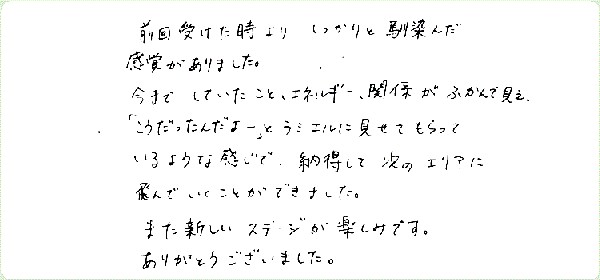 前回受けた時より しっかりと馴染んだ
感覚がありました。
今まで していたこと、エネルギー、関係が ふかんで見え、
「こうだったんだよー」とラミエルに見せてもらって
いるような感じで、納得して 次のエリアに
飛んでいくことができました。
また新しい ステージが楽しみです。
ありがとうございました。